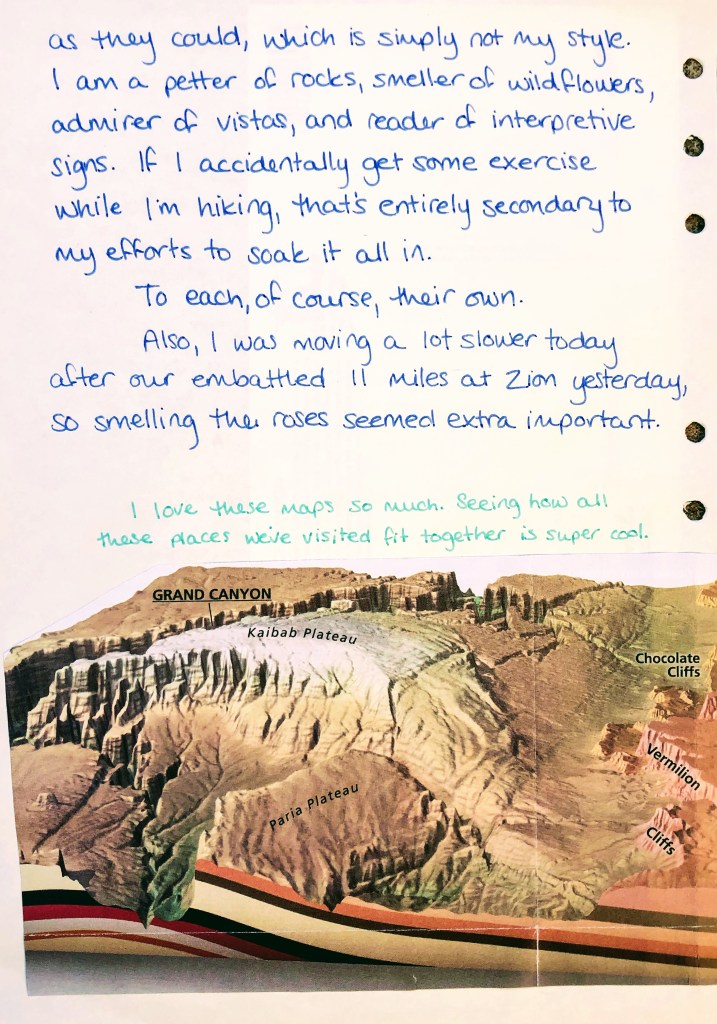 as they could, which is simply not my style.
I am a petter of rocks, smeller of wildflowers,
admirer of vistas, and reader of interpretive
signs. If I accidentally get some exercise
while I'm hiking, that's entirely secondary to
my efforts to soak it all in.
To each, of course, their own.
Also, I was moving a lot slower today
after our embattled 11 miles at Zion yesterday,
so smelling the roses seemed extra important.
I love these maps so much. Seeing how all
these places we've visited fit together is super cool.
GRAND CANYON
Kaibab Plateau
Chocolate
Cliffs
Vermilion
Paria Plateau
Cliffs